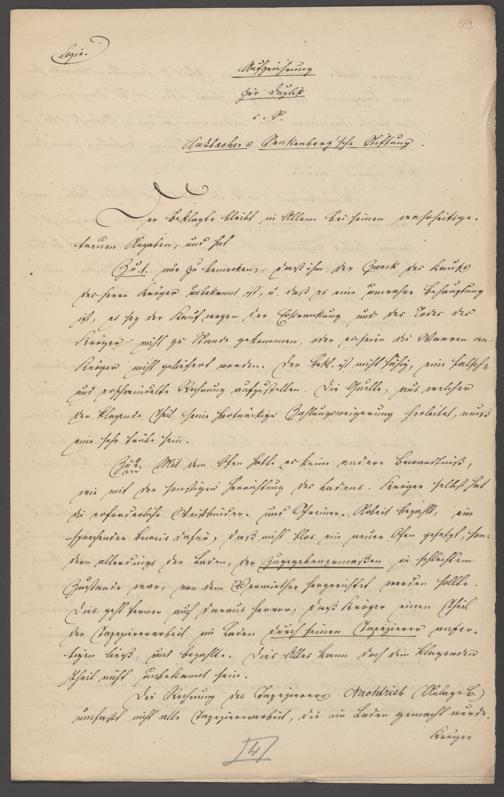 59
Copie.
Aufzeichnung
zur Duplik
i. S.
Ansbacher c. Senkenberg'sche Stiftung.
Der Beklagte bleibt in Allem bei seinen wahrheitsge-
treuen Angaben, und hat
Zu 1. nur zu bemerken, daß ihm der Zweck des Kaufs
des Herrn Krüger unbekannt ist, u. daß es eine unwahre Behauptung
ist, es sey der Kauf wegen der Erkrankung und des Todes des
Krüger nicht zu Stande gekommen, oder es seien die Waaren an
Krüger nicht geliefert worden. Der Bekl. ist nicht fähig, eine falsche
und erschwindelte Rechnung aufzustellen. Die Quelle, aus welcher
der klagende Theil seine hartnäckige Zahlungsweigerung herleitet, muß
eine sehr trübe sein.
Zu 2. Mit dem Ofen hatte es keine andere Bewandtniß,
wie mit der sonstigen Herrichtung des Ladens. Krüger selbst hat
die erforderliche Weißbinder- und Schreiner-Arbeit bezahlt, ein
sprechender Beweis dafür, daß nicht blos ein neuer Ofen gesetzt, son-
dern allerdings der Laden, der zugegebenermaßen in schlechtem
Zustande war, von dem Vermiether hergerichtet werden sollte.
Dies geht ferner auch daraus hervor, daß Krüger einen Theil
der Tapezierarbeit im Laden durch seinen Tapezierer anfer-
tigen ließ, und bezahlte. Dies Alles kann doch dem klagenden
Theil nicht unbekannt sein.
Die Rechnung des Tapezierers Nachtrieb (Anlage C.)
umfaßt nicht alle Tapezierarbeit, die im Laden gemacht wurde.
Krüger
4